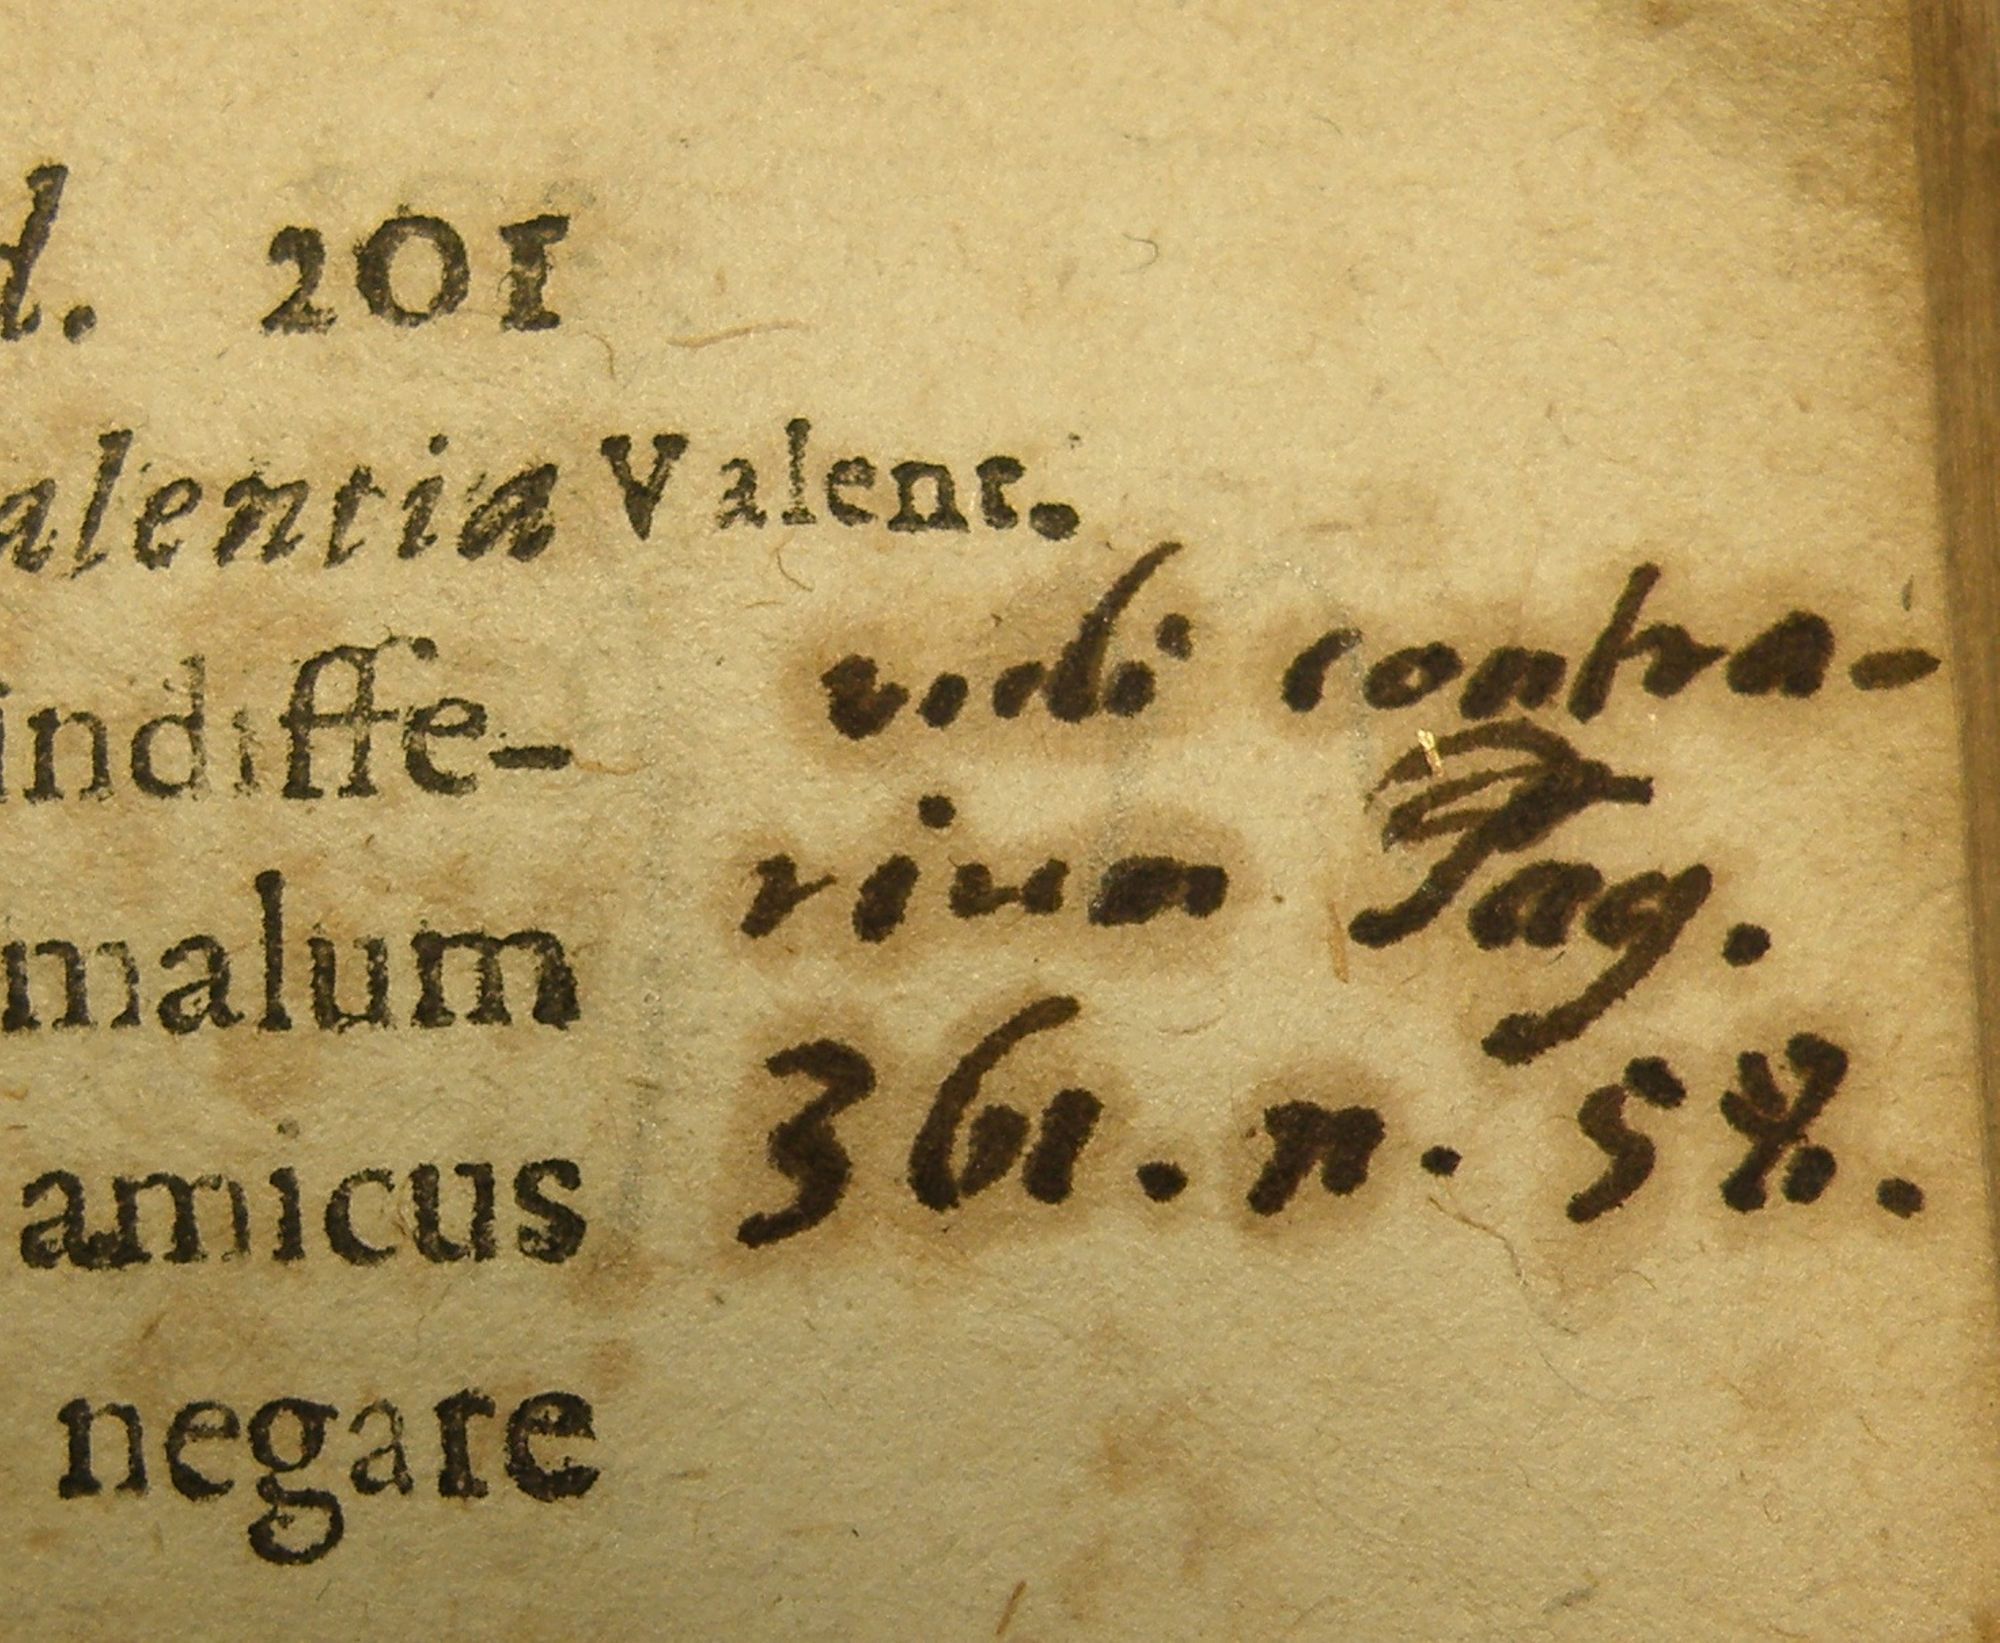 d. 201
alentia Valent.
indiffe-
vidi contra-
malum
rium Pag.
amicus
361. n. 58.
negare